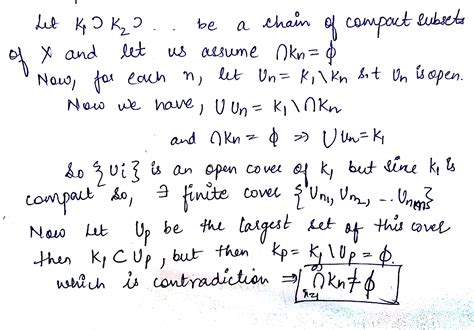 Let K₁ ⊃ K₂ ⊃ . . . be a chain of compact subsets
of X and let us assume ∩Kn = ϕ
Now, for each n, let Un = K₁\Kn s.t Un is open.
Now we have, ∪Un = K₁\∩Kn
and ∩Kn = ϕ ⇒ ∪Un = K₁
So {Ui} is an open cover of K₁ but since K₁ is
compact so, ∃ finite cover {Un₁, Un₂, ... Unm}
Now let Up be the largest set of this cover
then K₁ ⊂ Up, but then Kp = K₁\Up = ϕ.
which is contradiction ⇒ ∞∩n=1 Kn ≠ ϕ